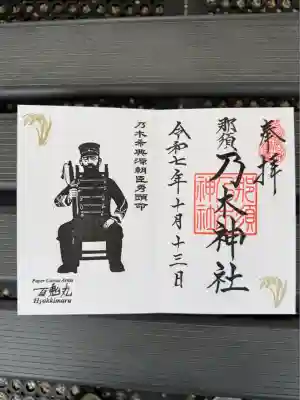 奉拝
那須
乃木神社
那須
乃木
神社
令和七年十月十三日
乃木希典源朝臣秀顕命
Paper Canvas Artist
百鬼丸
Hyakkimaru